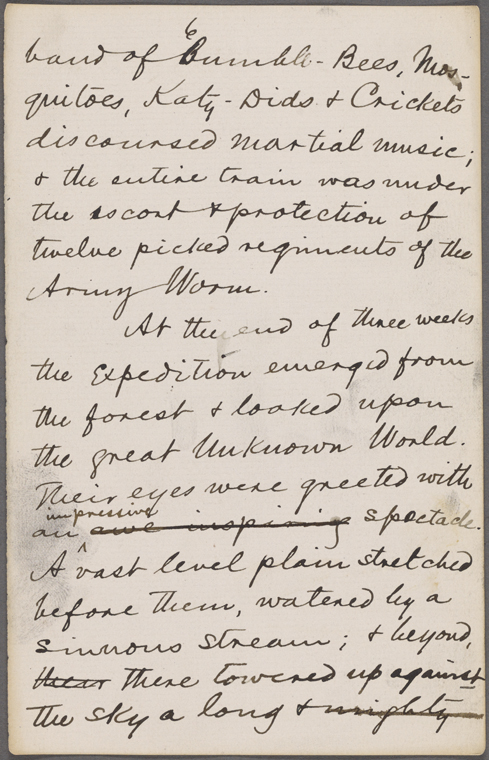 6
band of Bumble-Bees, Mos-
quitoes, Katy-Dids & Crickets
discoursed martial music;
& the entire train was under
the escort & protection of
twelve picked regiments of the
Army Worm.
At the end of three weeks
the Expedition emerged from
the forest & looked upon
the great Unknown World.
Their eyes were greeted with
impressive
an awe inspiring spectacle.
A vast level plain stretched
before them, watered by a
sinuous stream; & beyond,
there towered up against
the sky a long & mighty